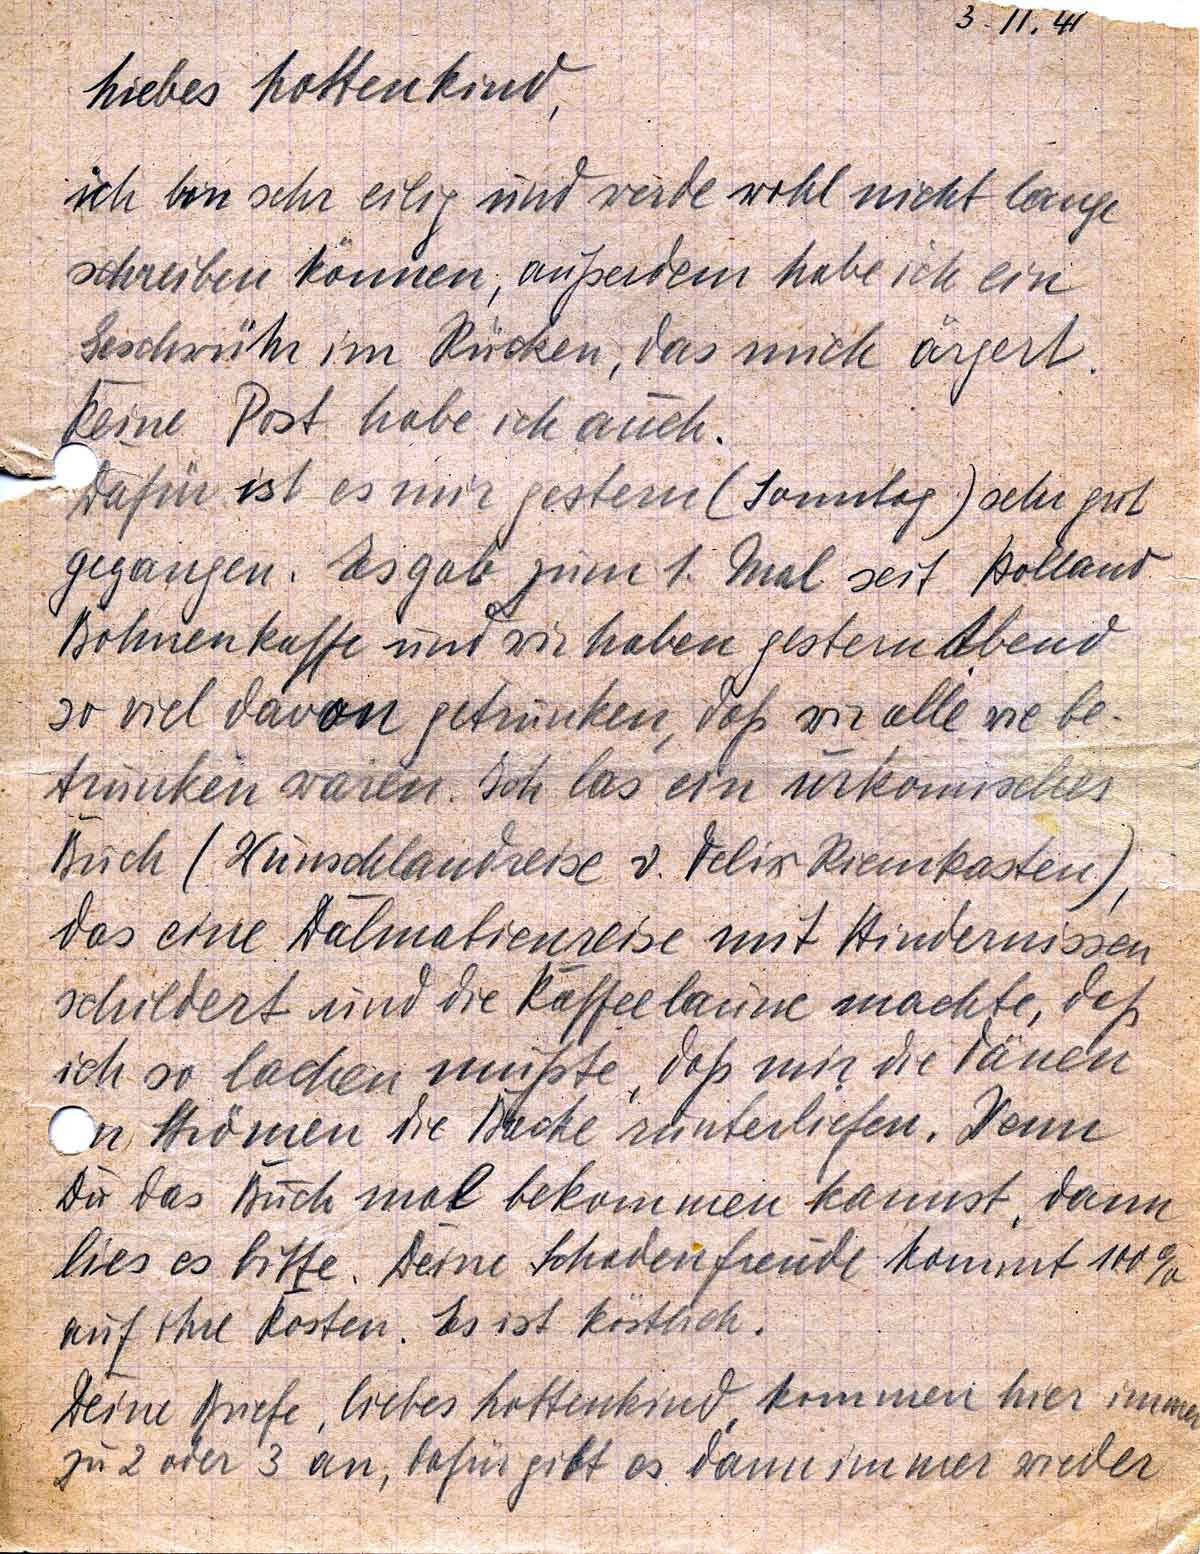 3.11.41
Liebes Lottenkind,
ich bin sehr eilig und werde wohl nicht lange
schreiben können, außerdem habe ich ein
Geschwühr im Rücken, das mich ärgert.
Keine Post habe ich auch.
Dafür ist es mir gestern (Sonntag) sehr gut
gegangen. Es gab zum 1. Mal seit Holland
Bohnenkaffe und wir haben gestern Abend
so viel davon getrunken, daß wir alle wie be-
trunken waren. Ich las ein urkomisches
Buch (Wunschlandreise v. Felix Riemkasten),
das eine Dalmatienreise mit Hindernissen
schildert und die Kaffeelaune machte, daß
ich so lachen mußte, daß mir die Tänen
in Strömen die Backe runterliefen. Wenn
Du das Buch mal bekommen kannst, dann
lies es bitte. Deine Schadenfreude kommt 100%
auf ihre Kosten. Es ist köstlich.
Deine Briefe, liebes Lottenkind, kommen hier immer
zu 2 oder 3 an, dafür gibt es dann immer wieder